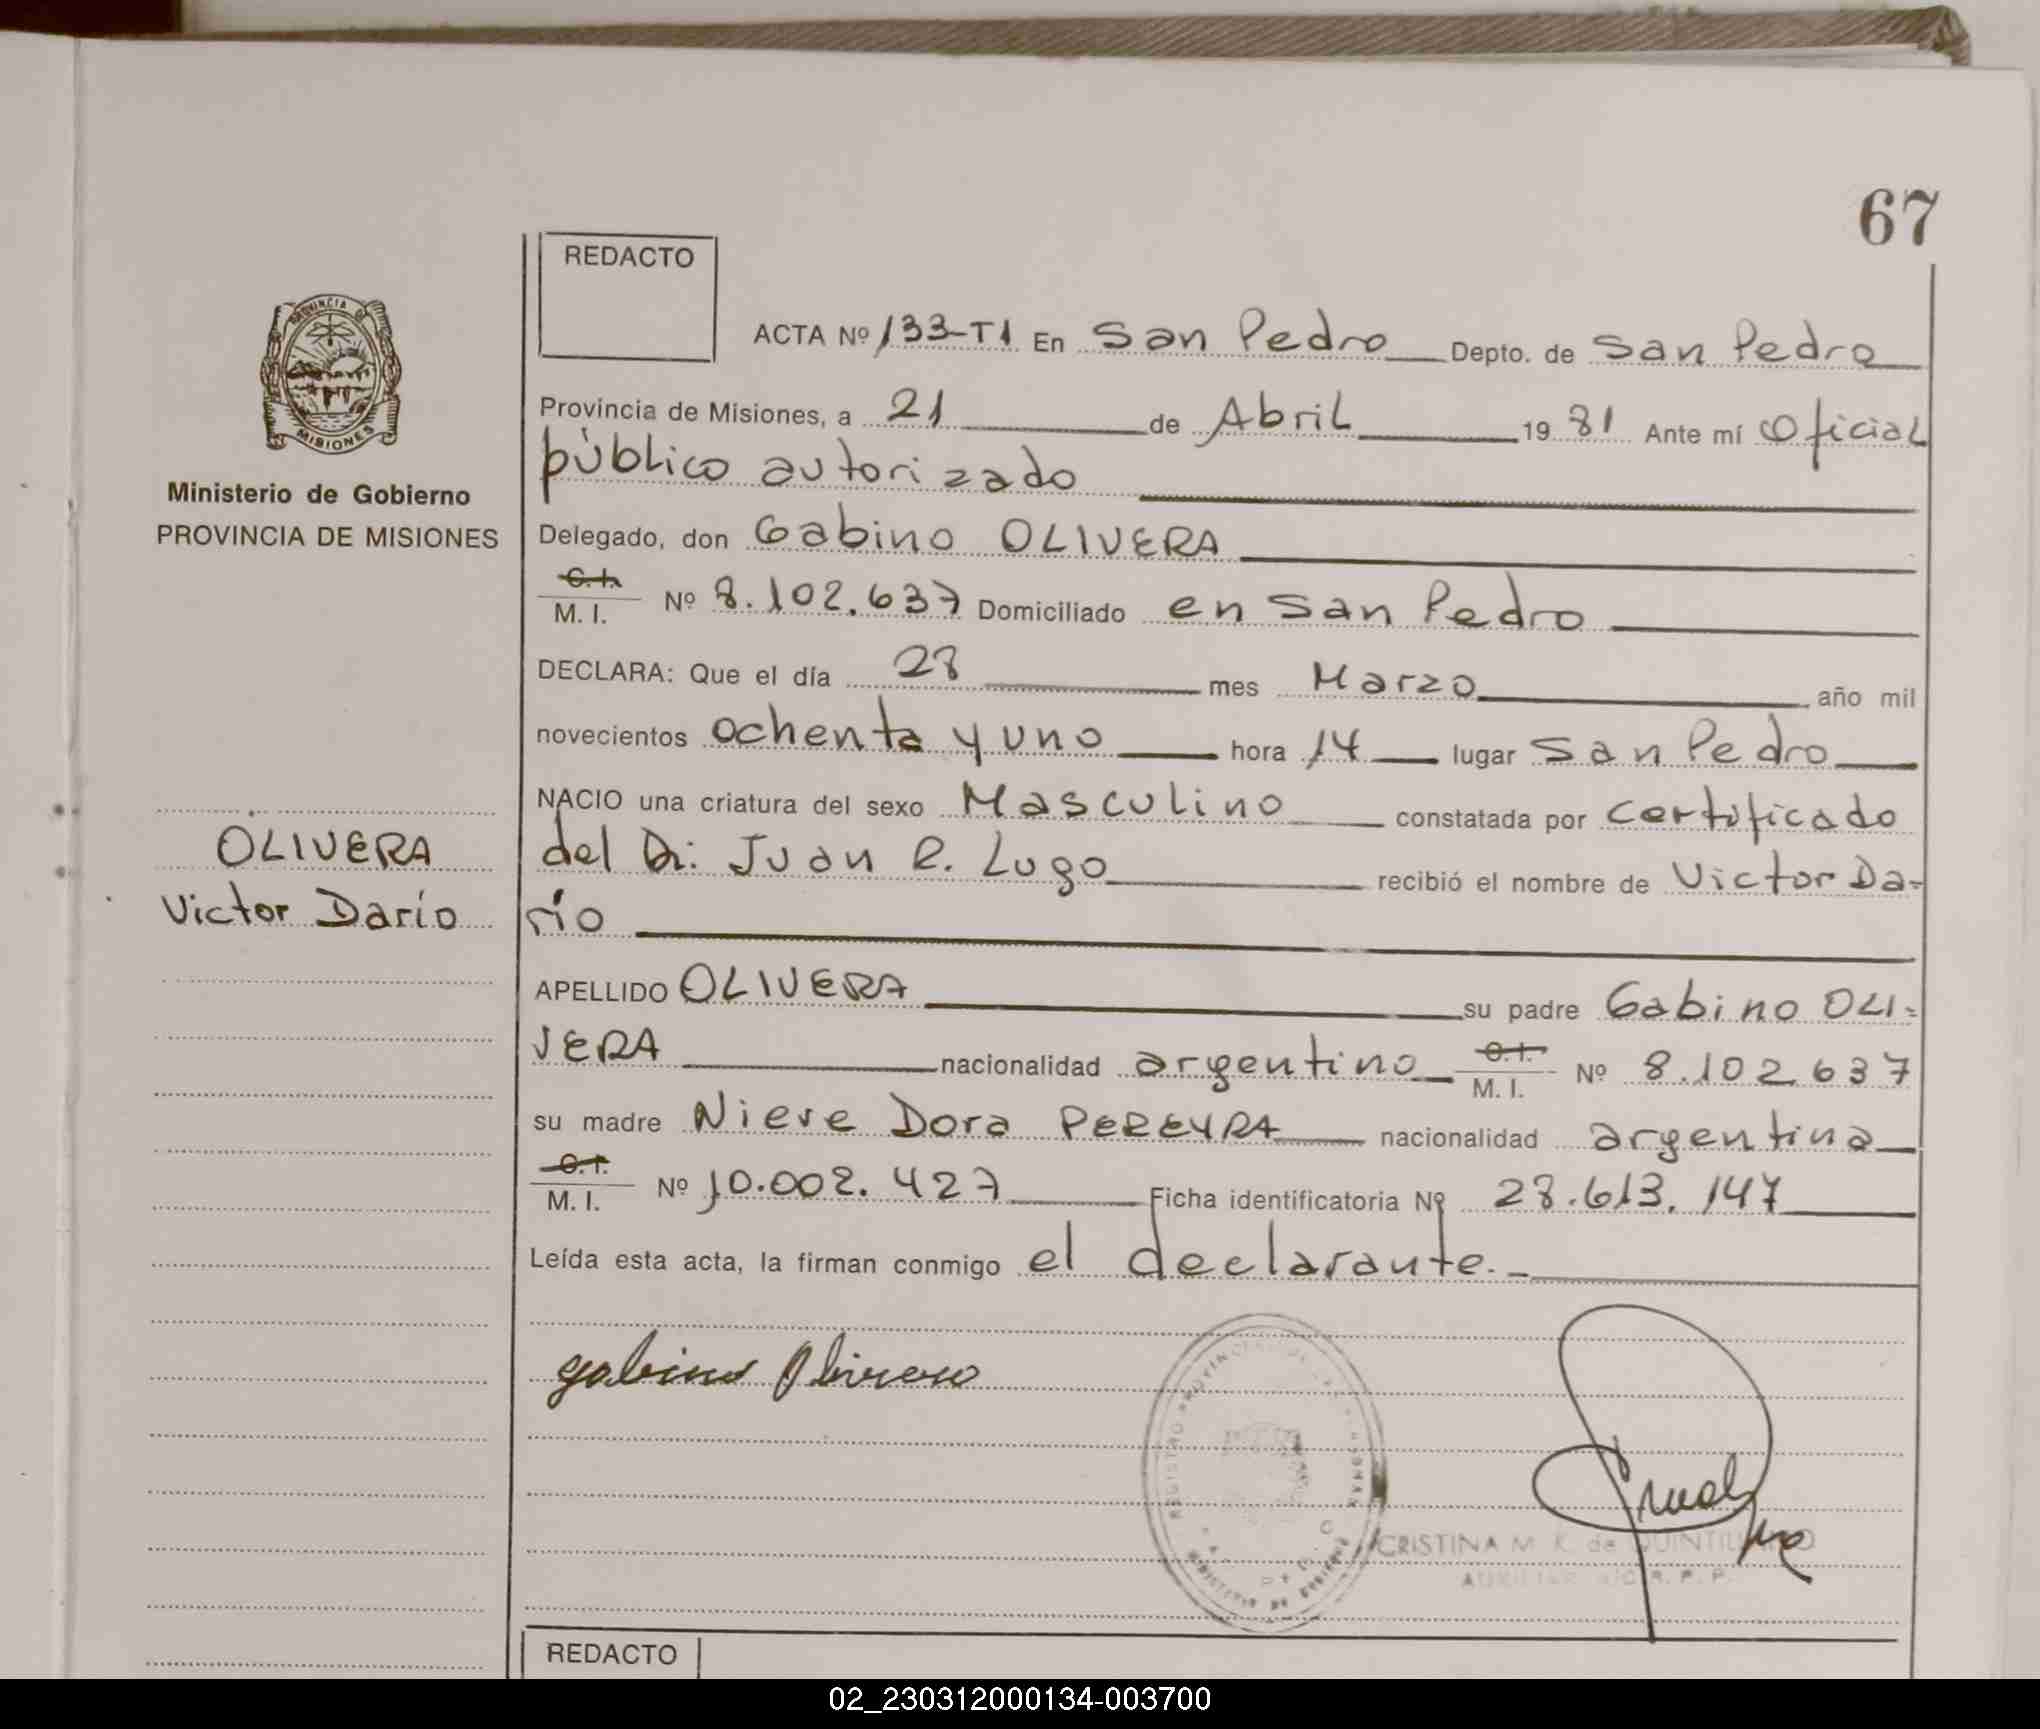 67
REDACTO
PROVINCIA DE
MISIONES
Ministerio de Gobierno
PROVINCIA DE MISIONES
ACTA Nº 133-T1 En San Pedro Depto. de San Pedro
Provincia de Misiones, a 21 de Abril 1981 Ante mí Oficial
público autorizado
Delegado, don Gabino OLIVERA
C. I.
M. I. Nº 8.102.637 Domiciliado en San Pedro
DECLARA: Que el día 28 mes Marzo año mil
novecientos ochenta y uno hora 14 lugar San Pedro
NACIO una criatura del sexo Masculino constatada por certificado
del Dr. Juan R. Lugo recibió el nombre de Victor Da-
río
OLIVERA
Victor Darío
APELLIDO OLIVERA su padre Gabino OLI-
VERA nacionalidad argentino C. I. M. I. Nº 8.102.637
su madre Nieve Dora PEREYRA nacionalidad argentina
C. I.
M. I. Nº 10.002.427 Ficha identificatoria Nº 28.613.147
Leída esta acta, la firman conmigo el declarante.-
Gabino Olivera
REGISTRO PROVINCIAL DE LAS PERSONAS
MINISTERIO DE GOBIERNO
CRISTINA M. K. de QUINTILIANO
REDACTO
02_230312000134-003700